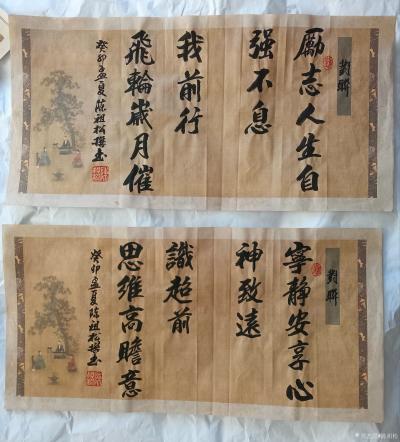 對聯
勵志人生自
强不息
我前行
飛輪歲月催
癸卯孟夏陈祖松撰书
對聯
寧静安享心
神致遠
識超前
思維高瞻意
癸卯孟夏陈祖松撰书